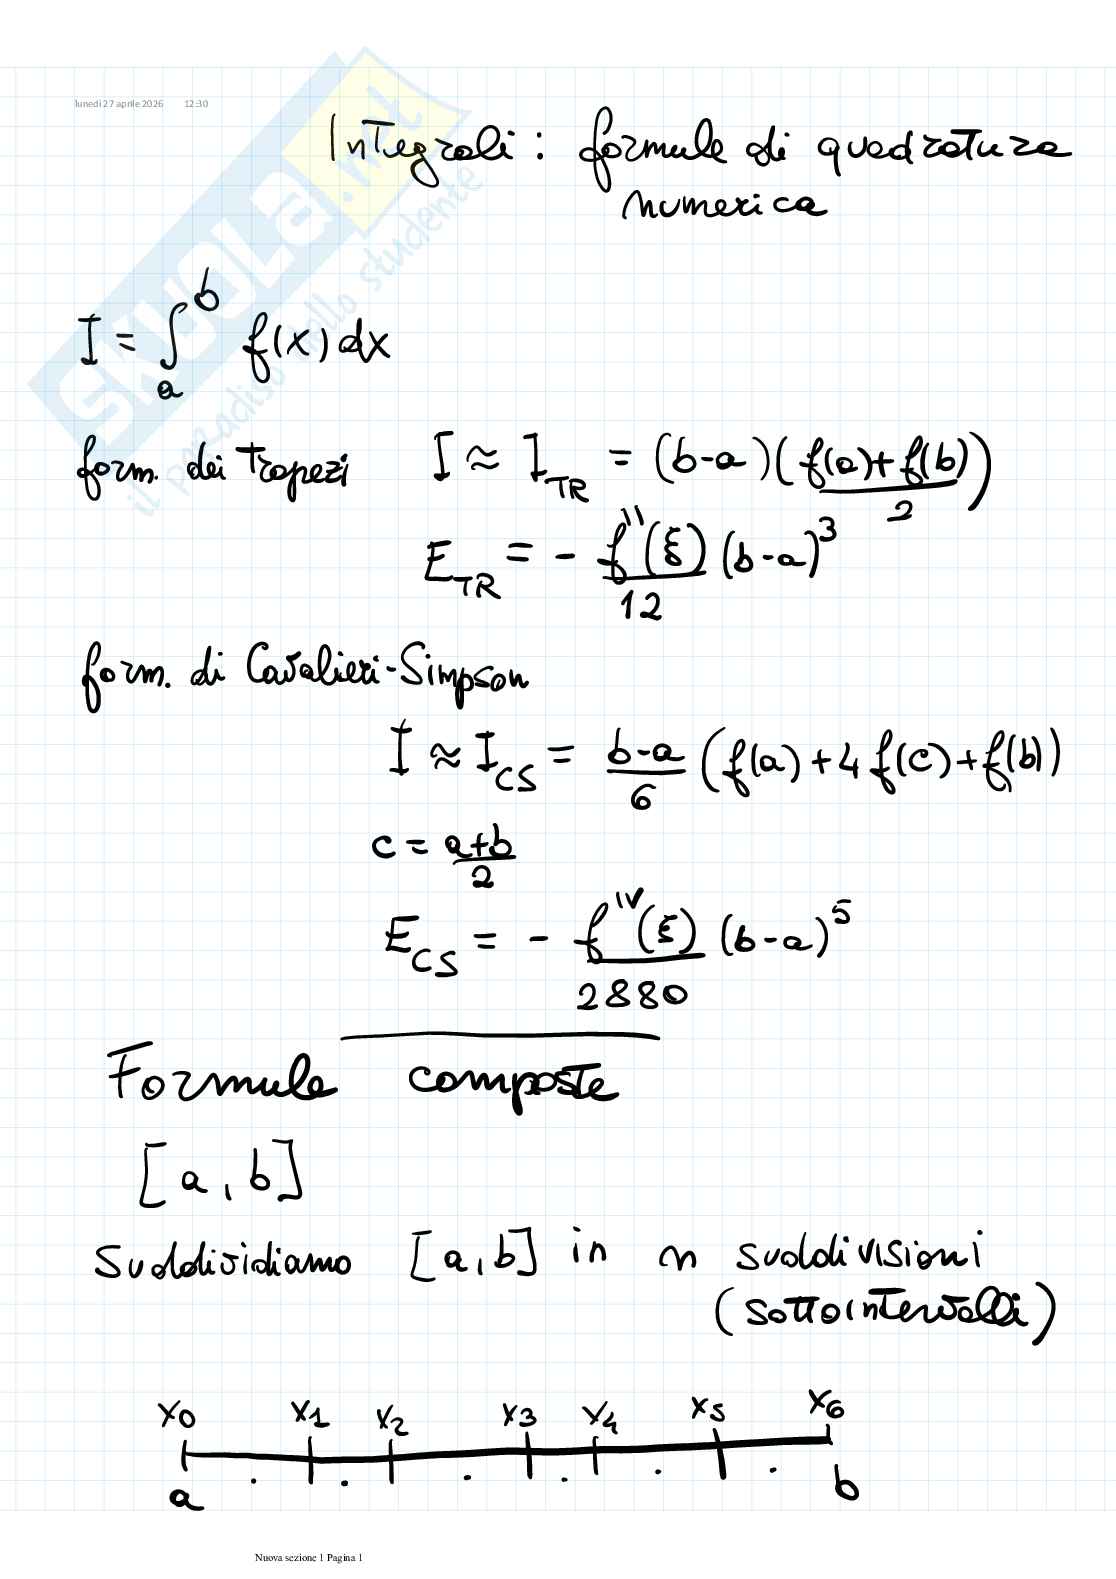 lunedì 27 aprile 2026 12:30
SKUOLA.net
il paradiso dello studente
Integrali: formule di quadratura
numerica
I = ∫_a^b f(x) dx
form. dei trapezi I ≈ I_TR = (b-a)((f(a)+f(b))/2)
E_TR = - f''(ξ)/12 (b-a)^3
form. di Cavalieri-Simpson
I ≈ I_CS = (b-a)/6 (f(a)+4f(c)+f(b))
c = (a+b)/2
E_CS = - f^IV(ξ)/2880 (b-a)^5
Formule composte
[a, b]
Suddividiamo [a, b] in n suddivisioni
(sottointervalli)
x0 x1 x2 x3 x4 x5 x6
a b
Nuova sezione 1 Pagina 1